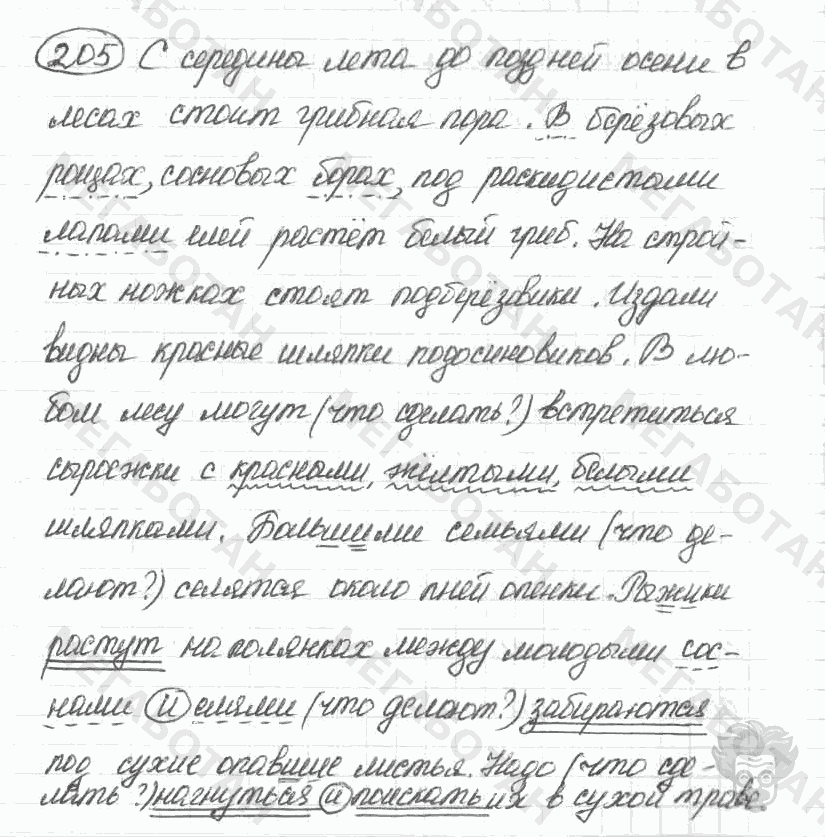 205 С середины лета до поздней осени в
лесах стоит грибная пора. В берёзовых
рощах, сосновых борах, под раскидистыми
лапами елей растёт белый гриб. На строй-
ных ножках стоят подберёзовики. Издали
видны красные шляпки подосиновиков. В лю-
бом лесу могут (что сделать?) встретиться
сыроежки с красными, жёлтыми, белыми
шляпками. Большими семьями (что де-
лают?) селятся около пней опенки. Рыжики
растут на полянках между молодыми сос-
нами и елями (что делают?) забираются
под сухие опавшие листья. Надо (что сде-
лать?) нагнуться и поискать их в сухой траве.
МЕГАБОТАН